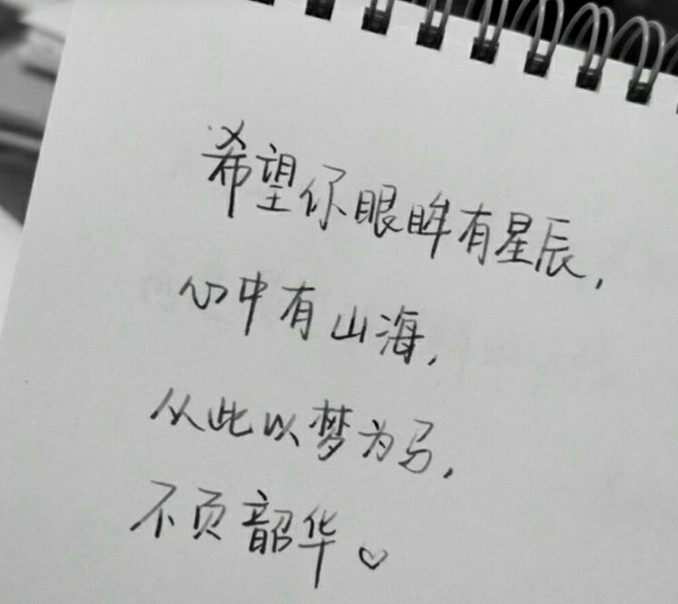 希望你眼眸有星辰，
心中有山海，
从此以梦为马，
不负韶华。♡